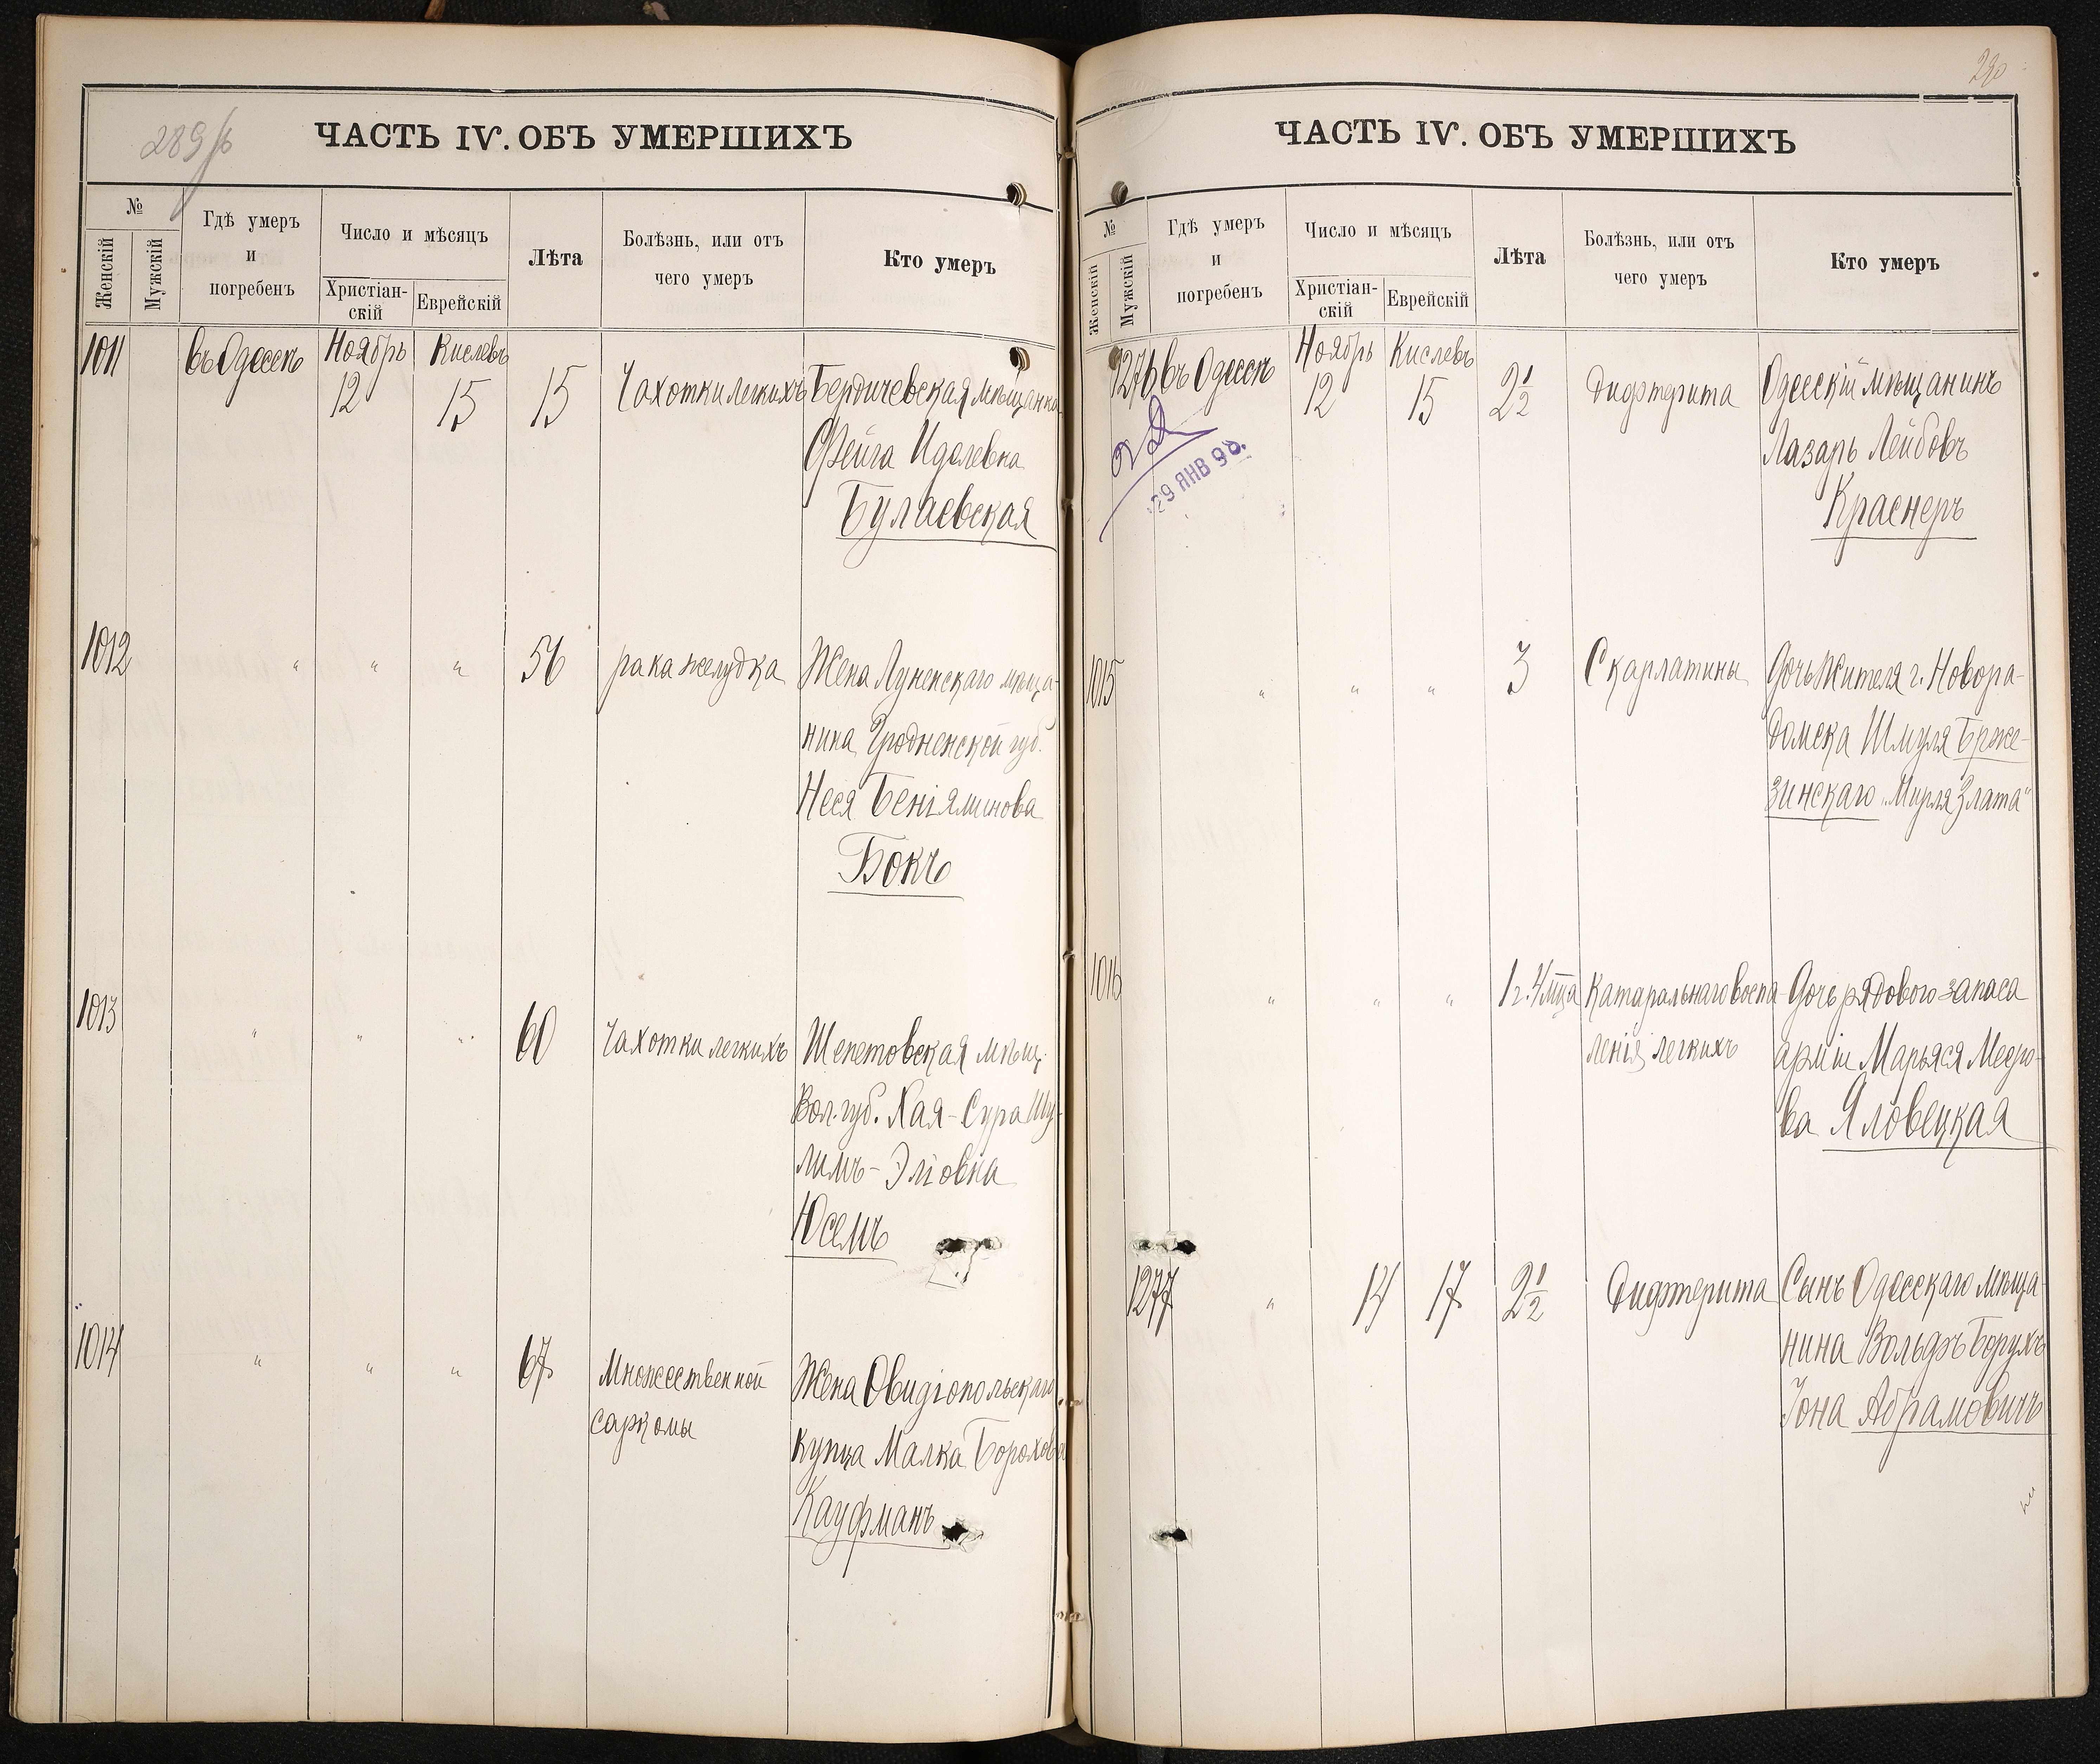 289 об
ЧАСТЬ IV. ОБЪ УМЕРШИХЪ
№
Женскій
Мужскій
Гдѣ умеръ
и
погребенъ
Число и мѣсяцъ
Христіан-
скій
Еврейскій
Лѣта
Болѣзнь, или отъ
чего умеръ
Кто умеръ
1011
въ Одессѣ
Ноябрь
12
Кислевъ
15
15
Чахотки легкихъ
Бердичевская мѣщанка
Фейга Идолевна
Булаевская
1012
" " "
56
рака желудка
Жена Луненскаго мѣща-
нина Гродненской губ.
Неся Беніяминова
Бокъ
1013
" " "
60
Чахотки легкихъ
Шепетовская мѣщ.
Вол. губ. Хая-Сура Шу-
лимъ-Эліовна
Юсемъ
1014
" " "
67
Множественной
саркомы
Жена Овидіопольскаго
купца Малка Борохова
Кауфманъ
290
ЧАСТЬ IV. ОБЪ УМЕРШИХЪ
№
Женскій
Мужскій
Гдѣ умеръ
и
погребенъ
Число и мѣсяцъ
Христіан-
скій
Еврейскій
Лѣта
Болѣзнь, или отъ
чего умеръ
Кто умеръ
1276
въ Одессѣ
Ноябрь
12
Кислевъ
15
2 1/2
Дифтерита
Одесскій мѣщанинъ
Лазарь Лейбовъ
Краснеръ
29 ЯНВ 98.
1015
" " "
3
Скарлатины
Дочь жителя г. Новора-
домска Шмуля Брже-
зинскаго "Мирля Злата"
1016
" " "
1 г. 4 мца
Катаральнаго воспа-
ленія легкихъ
Дочь рядового запаса
арміи Марьяся
ва Яловецкая
1277
"
14
17
2 1/2
Дифтерита
Сынъ Одесскаго мѣща-
нина Вольфъ Борухъ
Іона Абрамовичъ